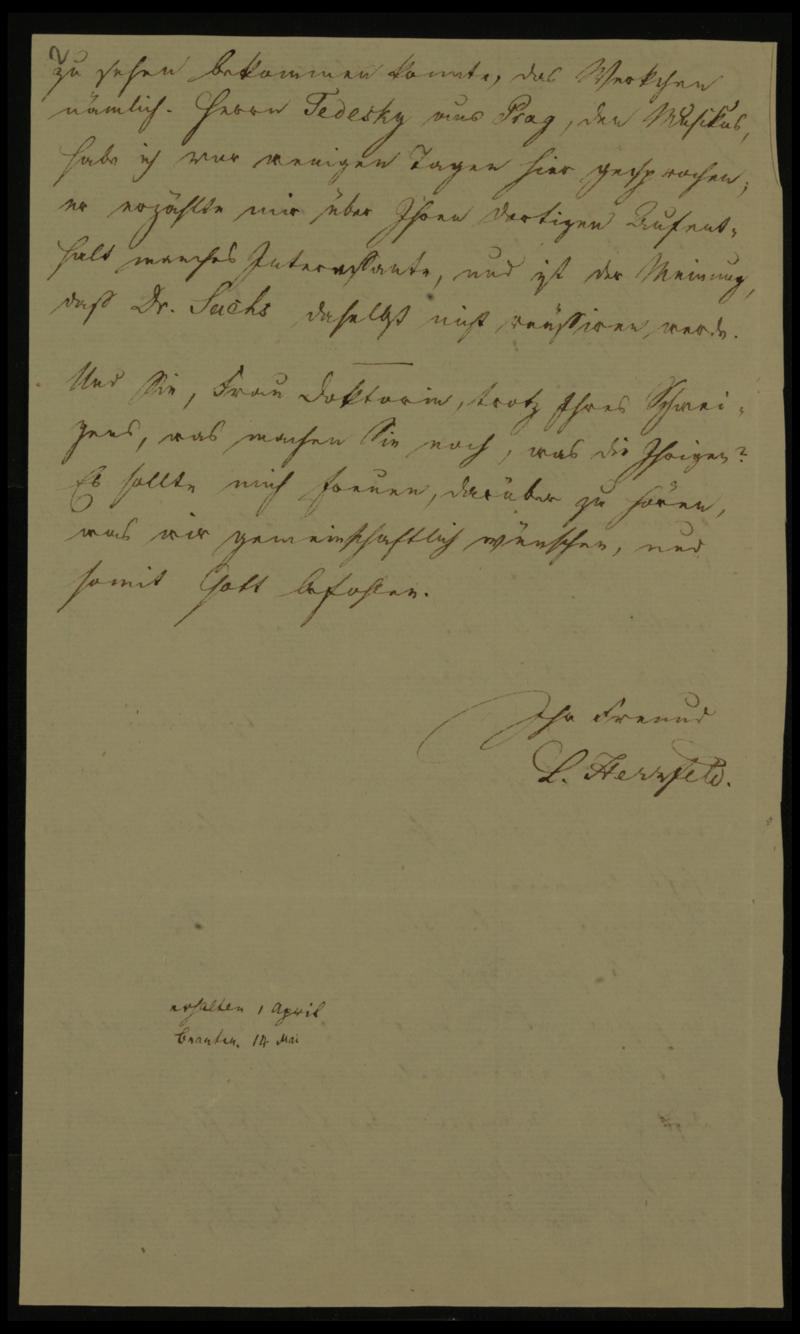 2
zu sehen bekommen konnte, das Werkchen
nämlich. Herrn Tedesky aus Prag, den Musikus,
habe ich vor wenigen Tagen hier gesprochen;
er erzählte mir über Ihren dortigen Aufent-
halt manches Interessante, und ist der Meinung,
daß Dr. Sachs daselbst nicht reüssiren werde.
Und Sie, Frau Doktorin, trotz Ihres Schwei-
gens, was machen Sie noch, was die Ihrigen?
Es sollte mich freuen, darüber zu hören,
was wir gemeinschaftlich wünschen, und
somit Gott befohlen.
Ihr Freund
L. Herzfeld.
erhalten 1 April
beantw. 14 Mai